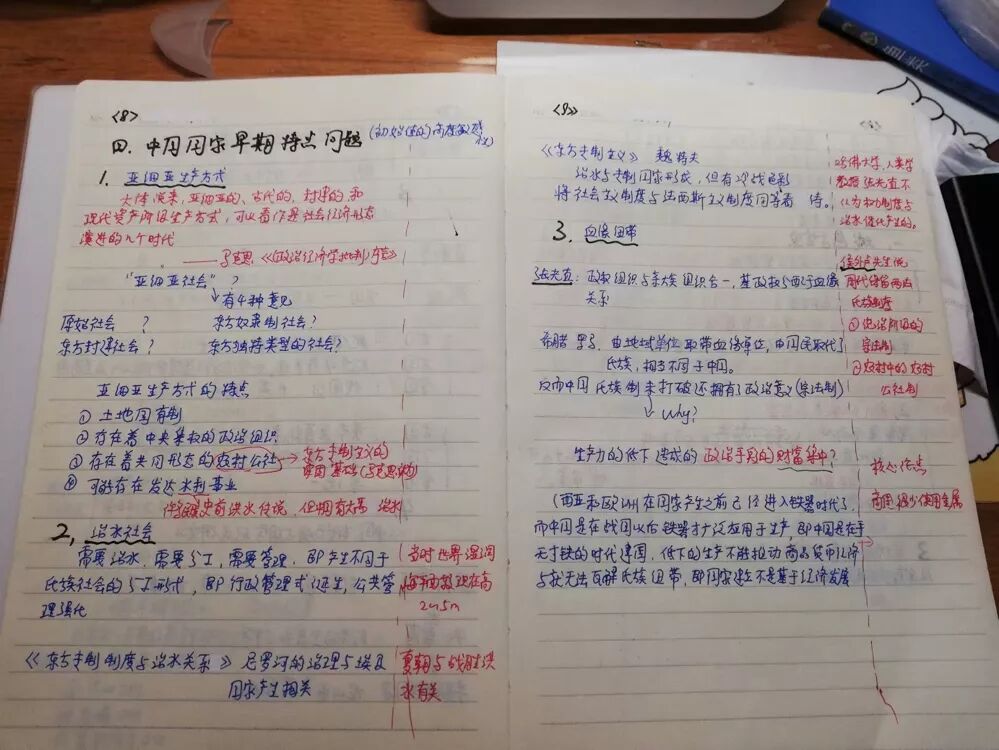 <8>
四. 中国国家早期特点问题
1. 亚细亚生产方式
大体说来,亚细亚的、古代的、封建的和
现代资产阶级生产方式,可以看作是社会经济形态
演进的几个时代
——马克思《<政治经济学批判>序言》
"亚细亚社会"?
↓有4种意见
原始社会? 东方奴隶制社会?
东方封建社会? 东方独特类型的社会?
亚细亚生产方式的特点
① 土地国有制
② 存在着中央集权的政治组织
③ 存在着共同形态的农村公社→东方专制主义的
牢固基础(马克思)
④ 可能存在发达水利事业
史前洪水传说,但拥有大禹治水
2. 治水社会
需要治水,需要分工,需要管理,即产生不同于
氏族社会的分工形式,即行政管理式诞生,公共管
理强化
当时世界
海平面较现在高
2~5m
《东方专制制度与治水关系》 尼罗河的治理与埃及
国家产生相关
夏朝与战胜洪
水有关
<9>
《东方专制主义》 魏特夫
治水与专制国家形成,但有冷战色彩
将社会主义制度与法西斯主义制度同等看待。
哈佛大学,人类学
教授张光直不
认为政治制度与
治水催化产生的。
3. 血缘纽带
张光直:政权组织与亲族组织合一,基政权与西行血缘
关系
侯外庐先生说
周代保留两面
氏族制度
①统治阶级的
宗法制
②农村中的农村
公社制
希腊 罗马,由地域单位取带血缘单位,由国民取代了
氏族,相当不同于中国。
反而中国氏族制未打破还拥有了政治意义(宗法制)
↓Why?
生产力的低下造成的政治手段的财富集中?
核心论点
(西亚和欧洲在国家产生之前已经进入铁器时代了,
而中国是在战国以后铁器才广泛应用于生产,即中国是在
无寸铁的时代建国,低下的生产不能推动商品货币经济
与 无法瓦解氏族纽带,即国家建立不是基于经济发展
商周很少使用金属